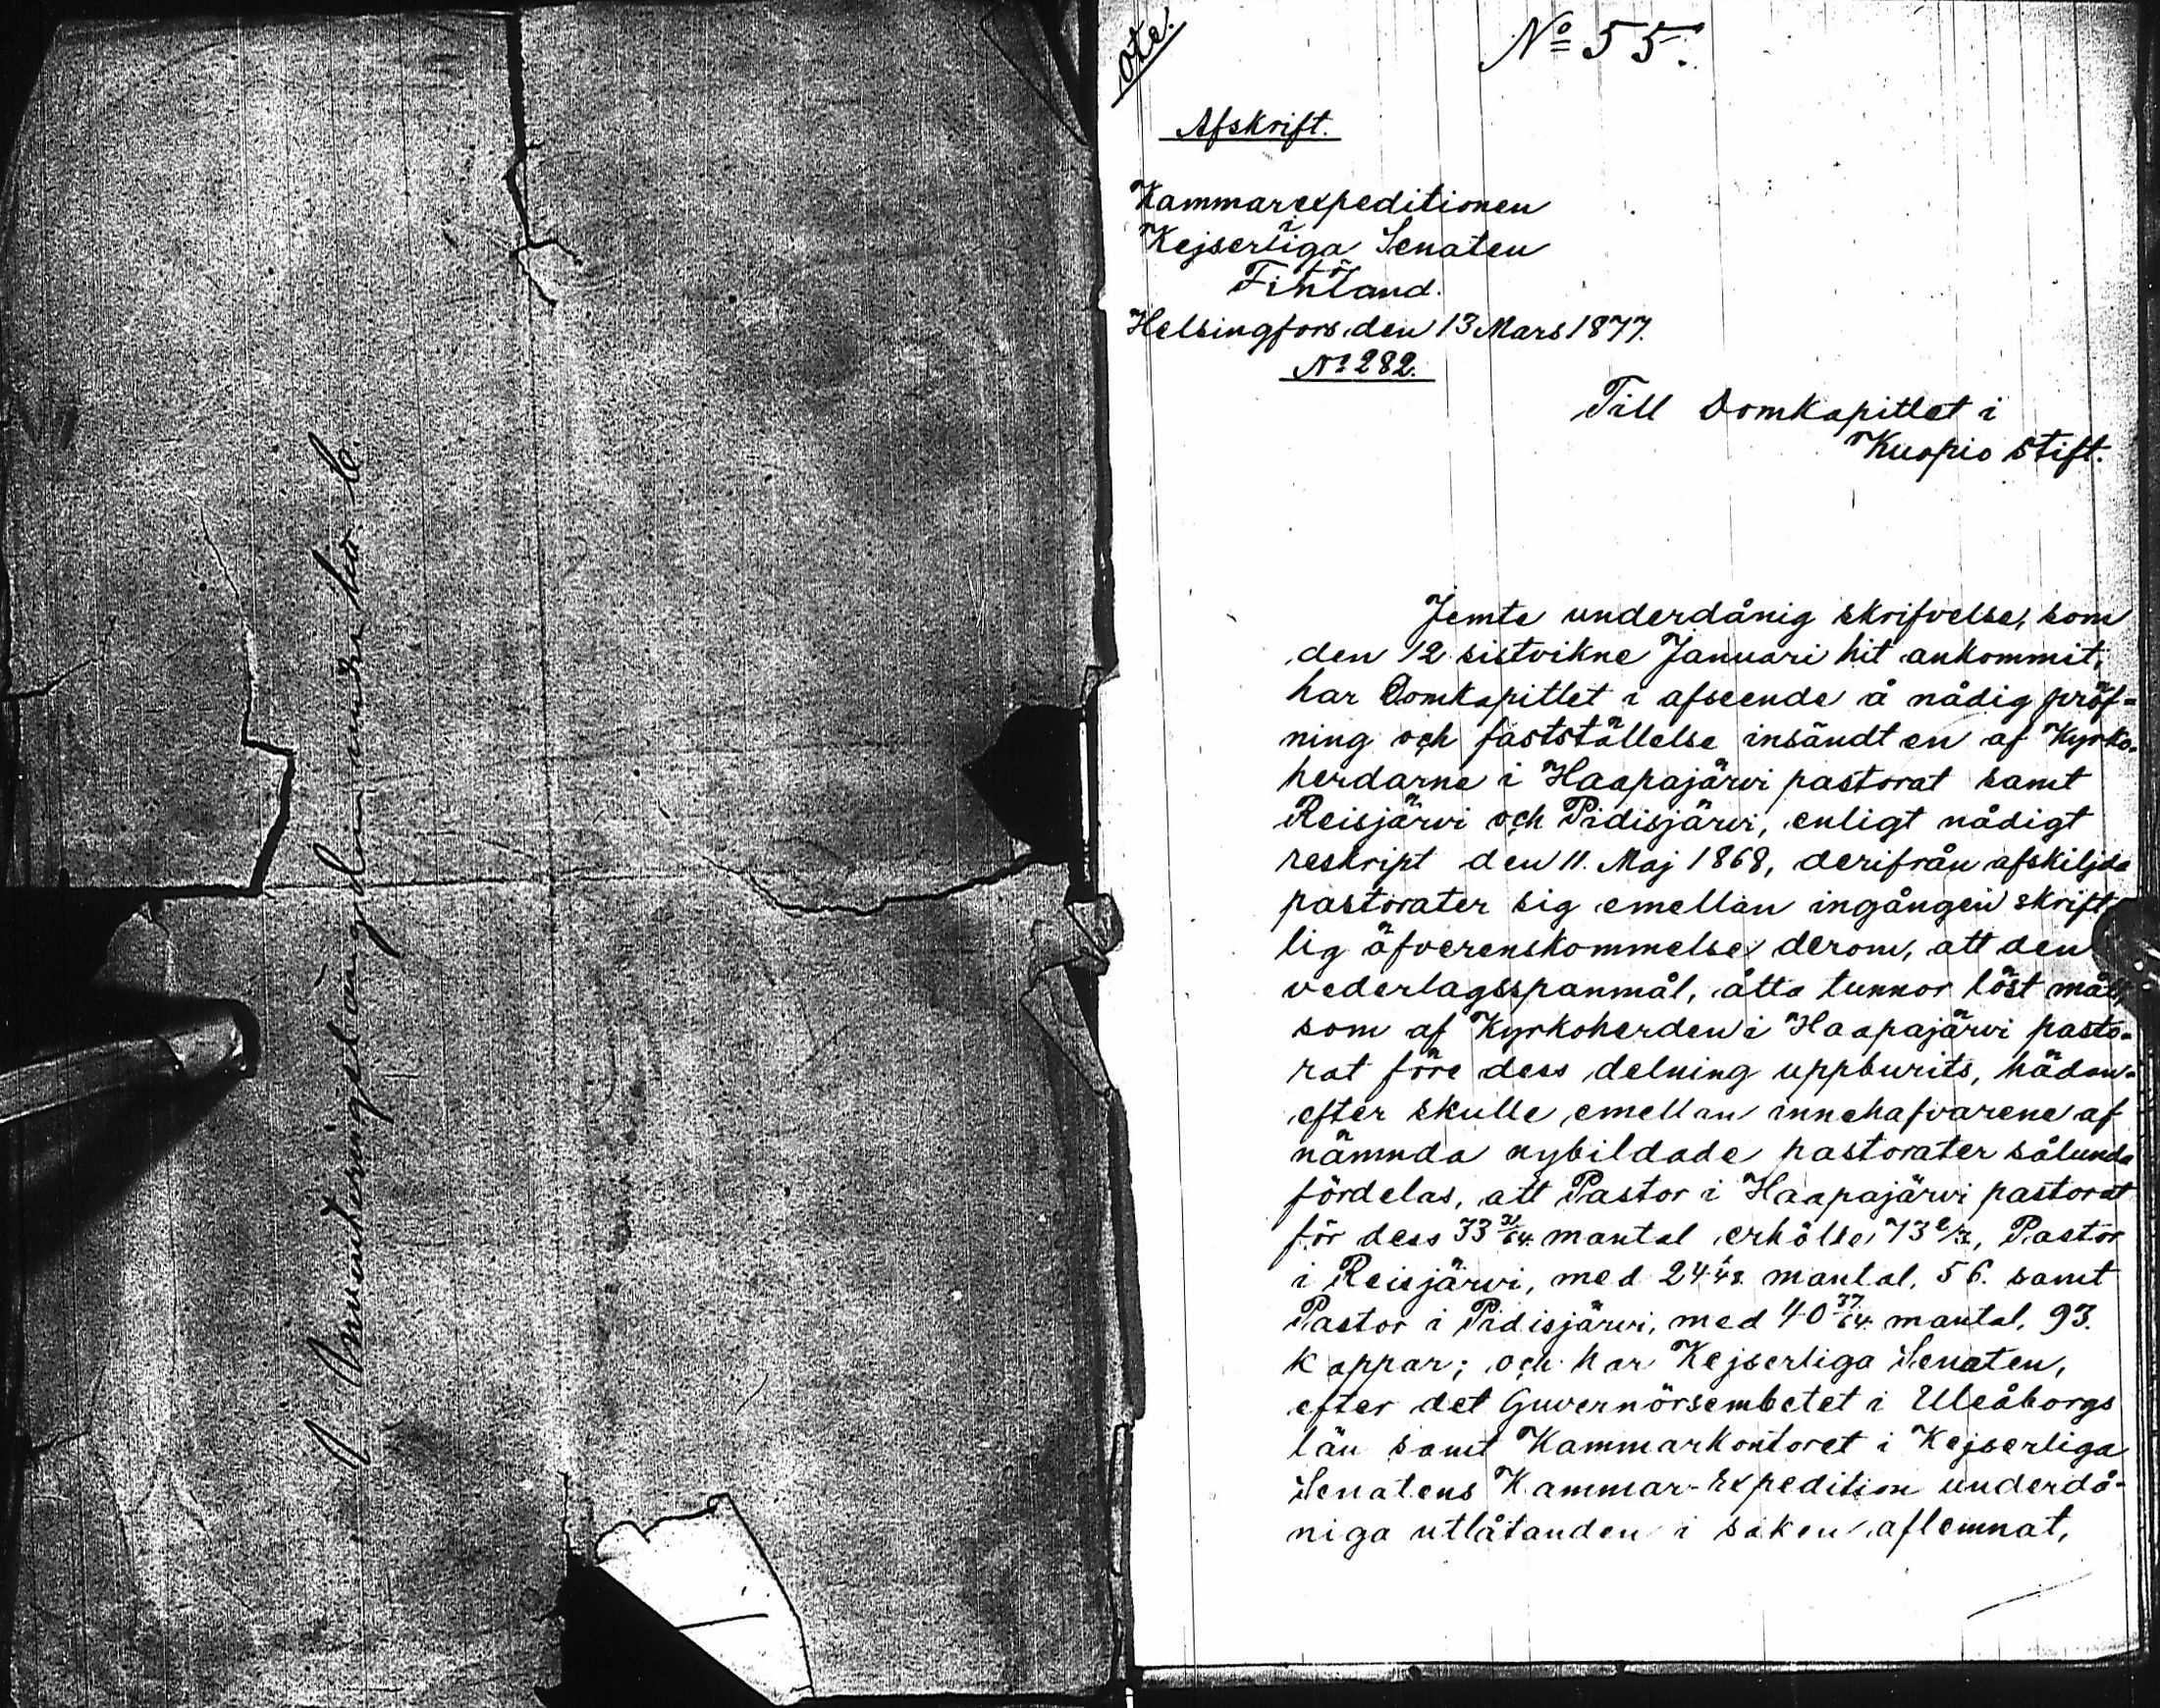 ote.
No 55.
Afskrift.
Kammarexpeditionen
i
Kejserliga Senaten
för
Finland.
Helsingfors den 13 Mars 1877.
No 282.
Till Domkapitlet i
Kuopio Stift.
Jemte underdånig skrifvelse, som
den 12 sistvikne Januari hit ankommit,
har Domkapitlet i afseende å nådig pröf-
ning och fastställelse insändt en af Kyrko-
herdarne i Haapajärvi pastorat samt
Reisjärvi och Pidisjärvi, enligt nådigt
reskript den 11. Maj 1868, derifrån afskiljda
pastorater sig emellan ingången skrift-
lig öfverenskommelse derom, att den
vederlagsspanmål, åtta tunnor löst mål,
som af Kyrkoherden i Haapajärvi pasto-
rat före dess delning uppburits, hädan-
efter skulle emellan innehafvarene af
nämnda nybildade pastorater sålunda
fördelas, att Pastor i Haapajärvi pastorat
för dess 33 mantal erhölle, Pastor
i Reisjärvi, med mantal, 56. samt
Pastor i Pidisjärvi, med 40 37/64 mantal, 93.
kappar; och har Kejserliga Senaten,
efter det Guvernörsembetet i Uleåborgs
län samt Kammarkontoret i Kejserliga
Senatens Kammar-Expedition underdå-
niga utlåtanden i saken aflemnat,